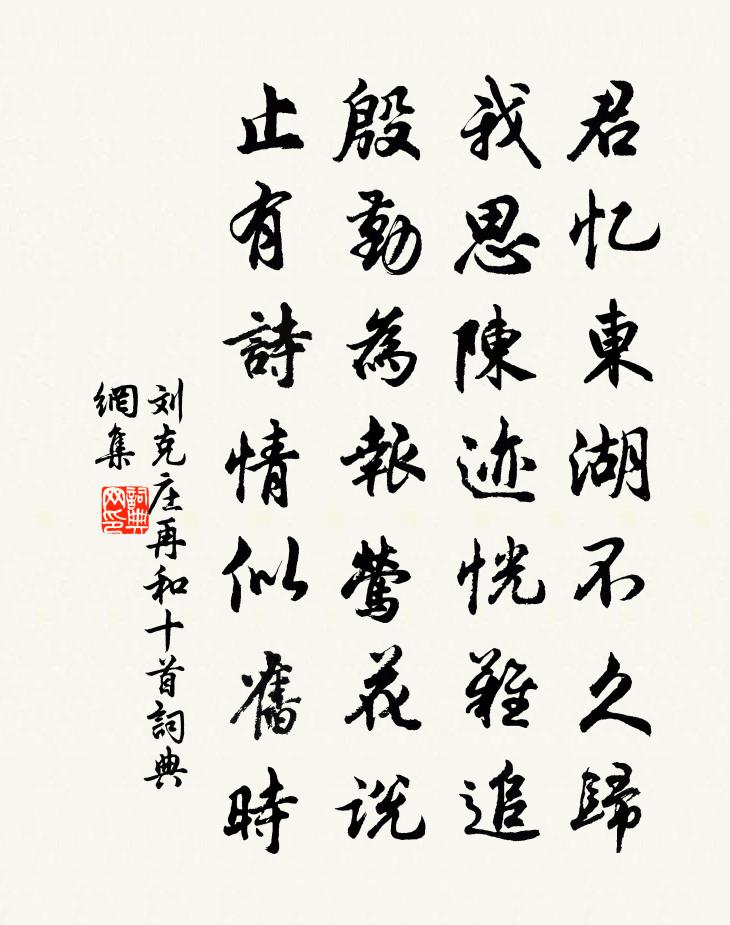 君忆東湖不久歸
我思陳迹恍難追
殷勤為報鶯花說
止有詩情似舊時
刘克庄再和十首詞典
網集
詞典
网印